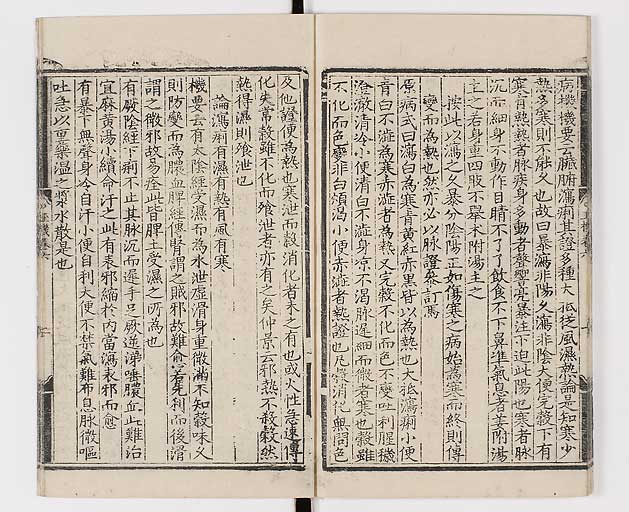 病機機要云臟腑瀉痢其證多種大抵從風濕熱論是知寒少
熱多寒則不能久也故曰暴瀉非陽久瀉非陰大便完穀下有
寒有熱熱者脉疾身多動者聲響亮暴注下迫此陽也寒者脉
沉而細身不動作目睛不了了飲食不下鼻準氣息者姜附湯
主之若身重四肢不舉术附湯主之
按此以瀉之久暴分陰陽正如傷寒之病始為寒而終則傳
變而為熱也然亦必以脉證參訂焉
原病式曰瀉白為寒青黃紅赤黑皆以為熱也大抵瀉痢小便
青白不澁為寒赤澁者為熱又完穀不化而色不變吐利腥穢
澄澈清冷小便清白不澁身凉不渴脉遲細而微者寒也穀雖
不化而色變非白煩渴小便赤澁者熱證也凡穀消化無問色
及他證便為熱也寒泄而穀消化者未之有也或火性急速傳
化失常穀雖不化而飱泄者亦有之矣仲景云邪熱不殺穀然
熱得濕則飱泄也
論瀉痢有濕有熱有風有寒
機要云有太陰經受濕而為水泄虛滑身重微滿不知穀味又
則防變而為膿血脾經傳腎謂之賊邪故難愈若先利而後滑
謂之微邪故易痊此皆脾土受濕之所為也
有厥陰經下痢不止其脉沉而遲手足厥逆涕唾膿血此難治
宜麻黃湯小續命汗之此有表邪縮於內當瀉表邪而愈
有暴下無聲身冷自汗小便自利大便不禁氣難布息脉微嘔
吐急以重藥溫之漿水散是也